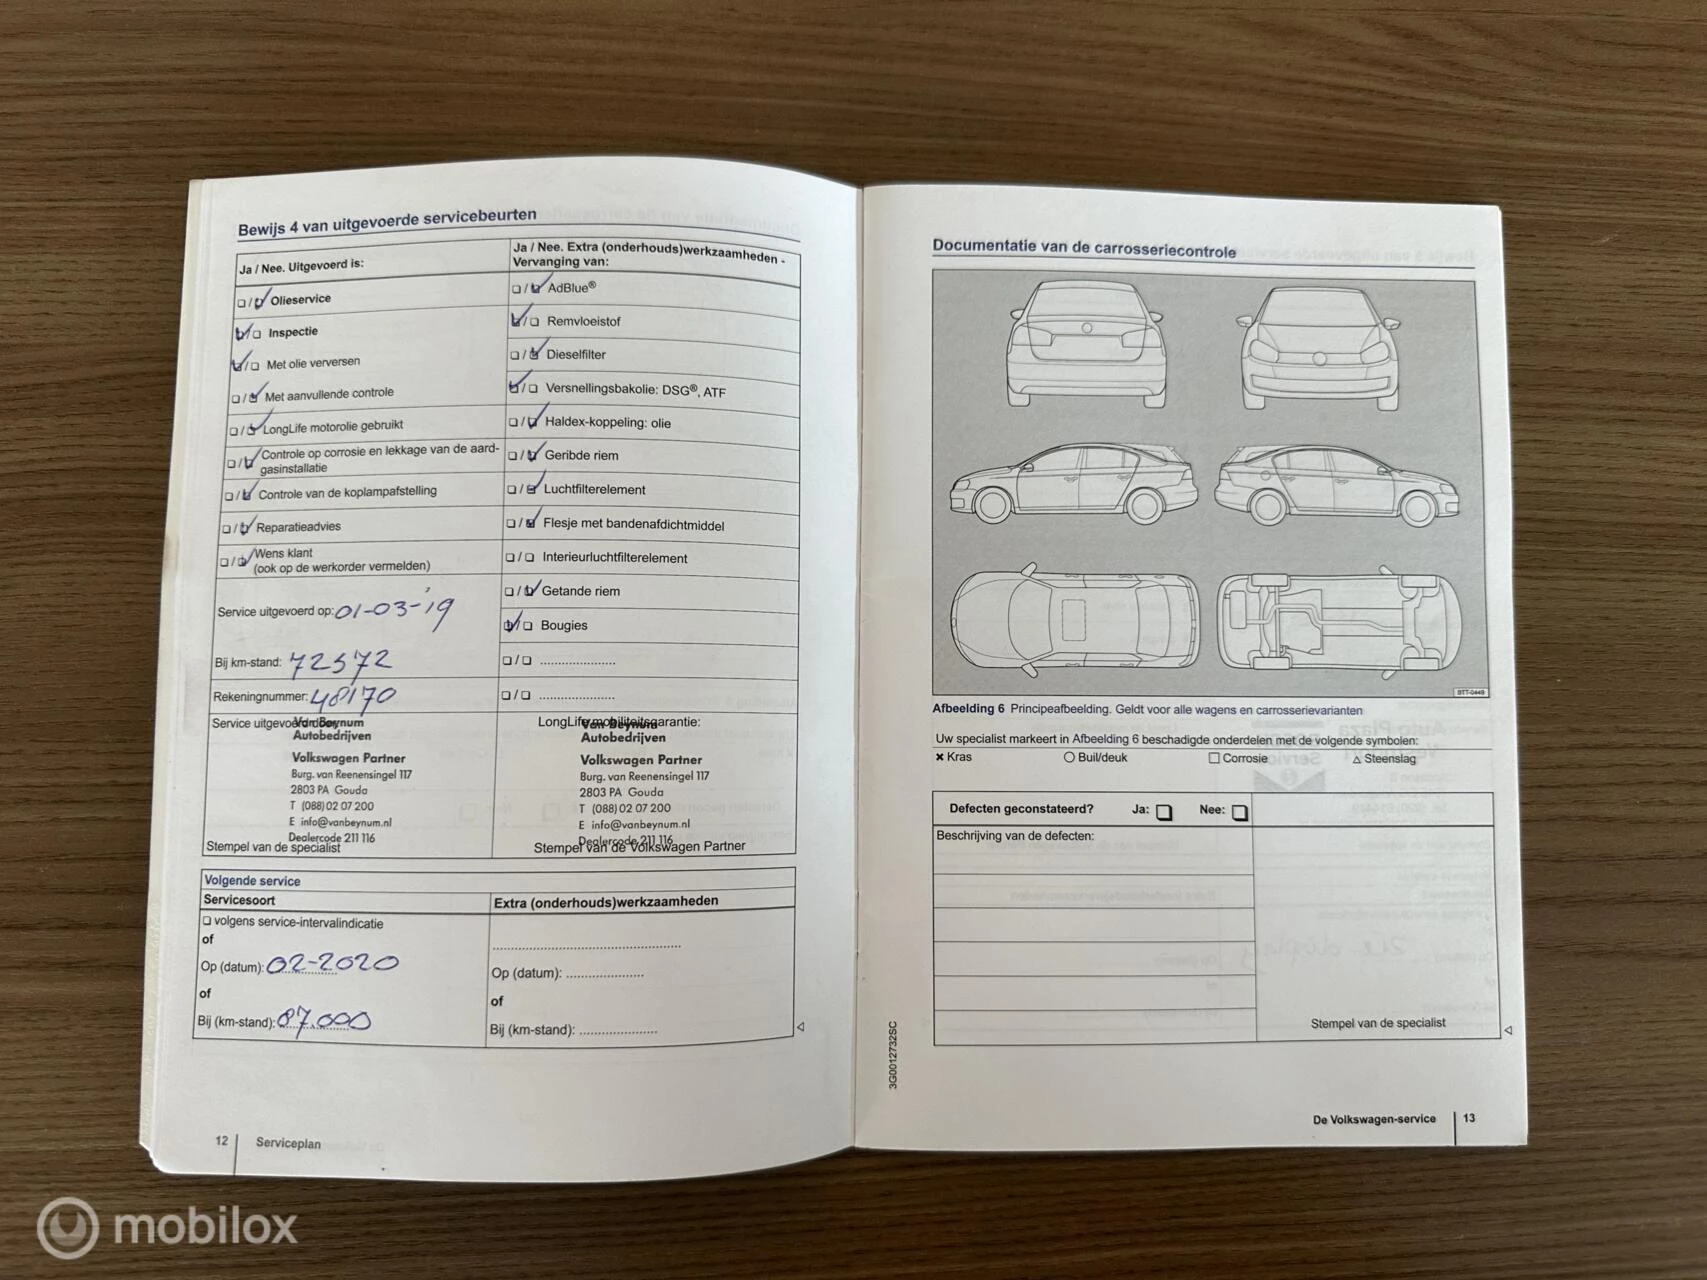 Bewijs 4 van uitgevoerde servicebeurten
Ja / Nee. Uitgevoerd is:
Olieservice
Inspectie
Met olie verversen
Met aanvullende controle
LongLife motorolie gebruikt
Controle op corrosie en lekkage van de aard-
gasinstallatie
Controle van de koplampafstelling
Reparatieadvies
Wens klant
(ook op de werkorder vermelden)
Service uitgevoerd op: 01-03-'19
Bij km-stand: 72572
Rekeningnummer: 48170
Ja / Nee. Extra (onderhouds)werkzaamheden -
Vervanging van:
AdBlue®
Remvloeistof
Dieselfilter
Versnellingsbakolie: DSG®, ATF
Haldex-koppeling: olie
Geribde riem
Luchtfilterelement
Flesje met bandenafdichtmiddel
Interieurluchtfilterelement
Getande riem
Bougies
Service uitgevoerd door:
Van Beynum
Autobedrijven
Volkswagen Partner
Burg. van Reenensingel 117
2803 PA Gouda
T (088) 02 07 200
E info@vanbeynum.nl
Dealercode 211 116
Stempel van de specialist
LongLife mobiliteitsgarantie:
Van Beynum
Autobedrijven
Volkswagen Partner
Burg. van Reenensingel 117
2803 PA Gouda
T (088) 02 07 200
E info@vanbeynum.nl
Dealercode 211 116
Stempel van de Volkswagen Partner
Volgende service
Servicesoort
volgens service-intervalindicatie
of
Op (datum): 02-2020
of
Bij (km-stand): 87.000
Extra (onderhouds)werkzaamheden
Op (datum):
of
Bij (km-stand):
12 Serviceplan
Documentatie van de carrosseriecontrole
BTT-0449
Afbeelding 6 Principeafbeelding. Geldt voor alle wagens en carrosserievarianten
Uw specialist markeert in Afbeelding 6 beschadigde onderdelen met de volgende symbolen:
Kras Buil/deuk Corrosie Steenslag
Defecten geconstateerd? Ja: Nee:
Beschrijving van de defecten:
Stempel van de specialist
3G0012732SC
De Volkswagen-service 13
mobilox